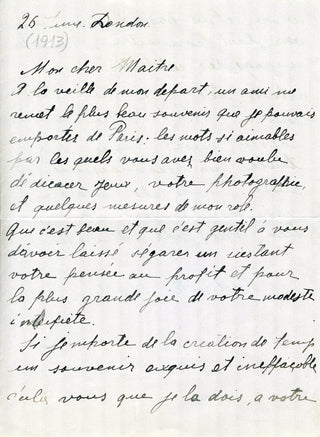 26 London
(1913)
Mon cher Maitre
A la veille de mon depart, un ami me
remet le plus beau souvenir que je pouvais
emporter de Paris. les mots si aimables
par les quels vous avez bien voulu
dédicacer Jeux, votre photographie,
et quelques mesures de mon role.
Que c'est beau et que c'est gentil à vous
d'avoir laissé ségarer un instant
votre pensée au profit et pour
la plus grande joie de votre modeste
interprete.
Si j'emporte de la création de
un souvenir exquis et ineffaçable
c'est a vous que je la dois, a votre